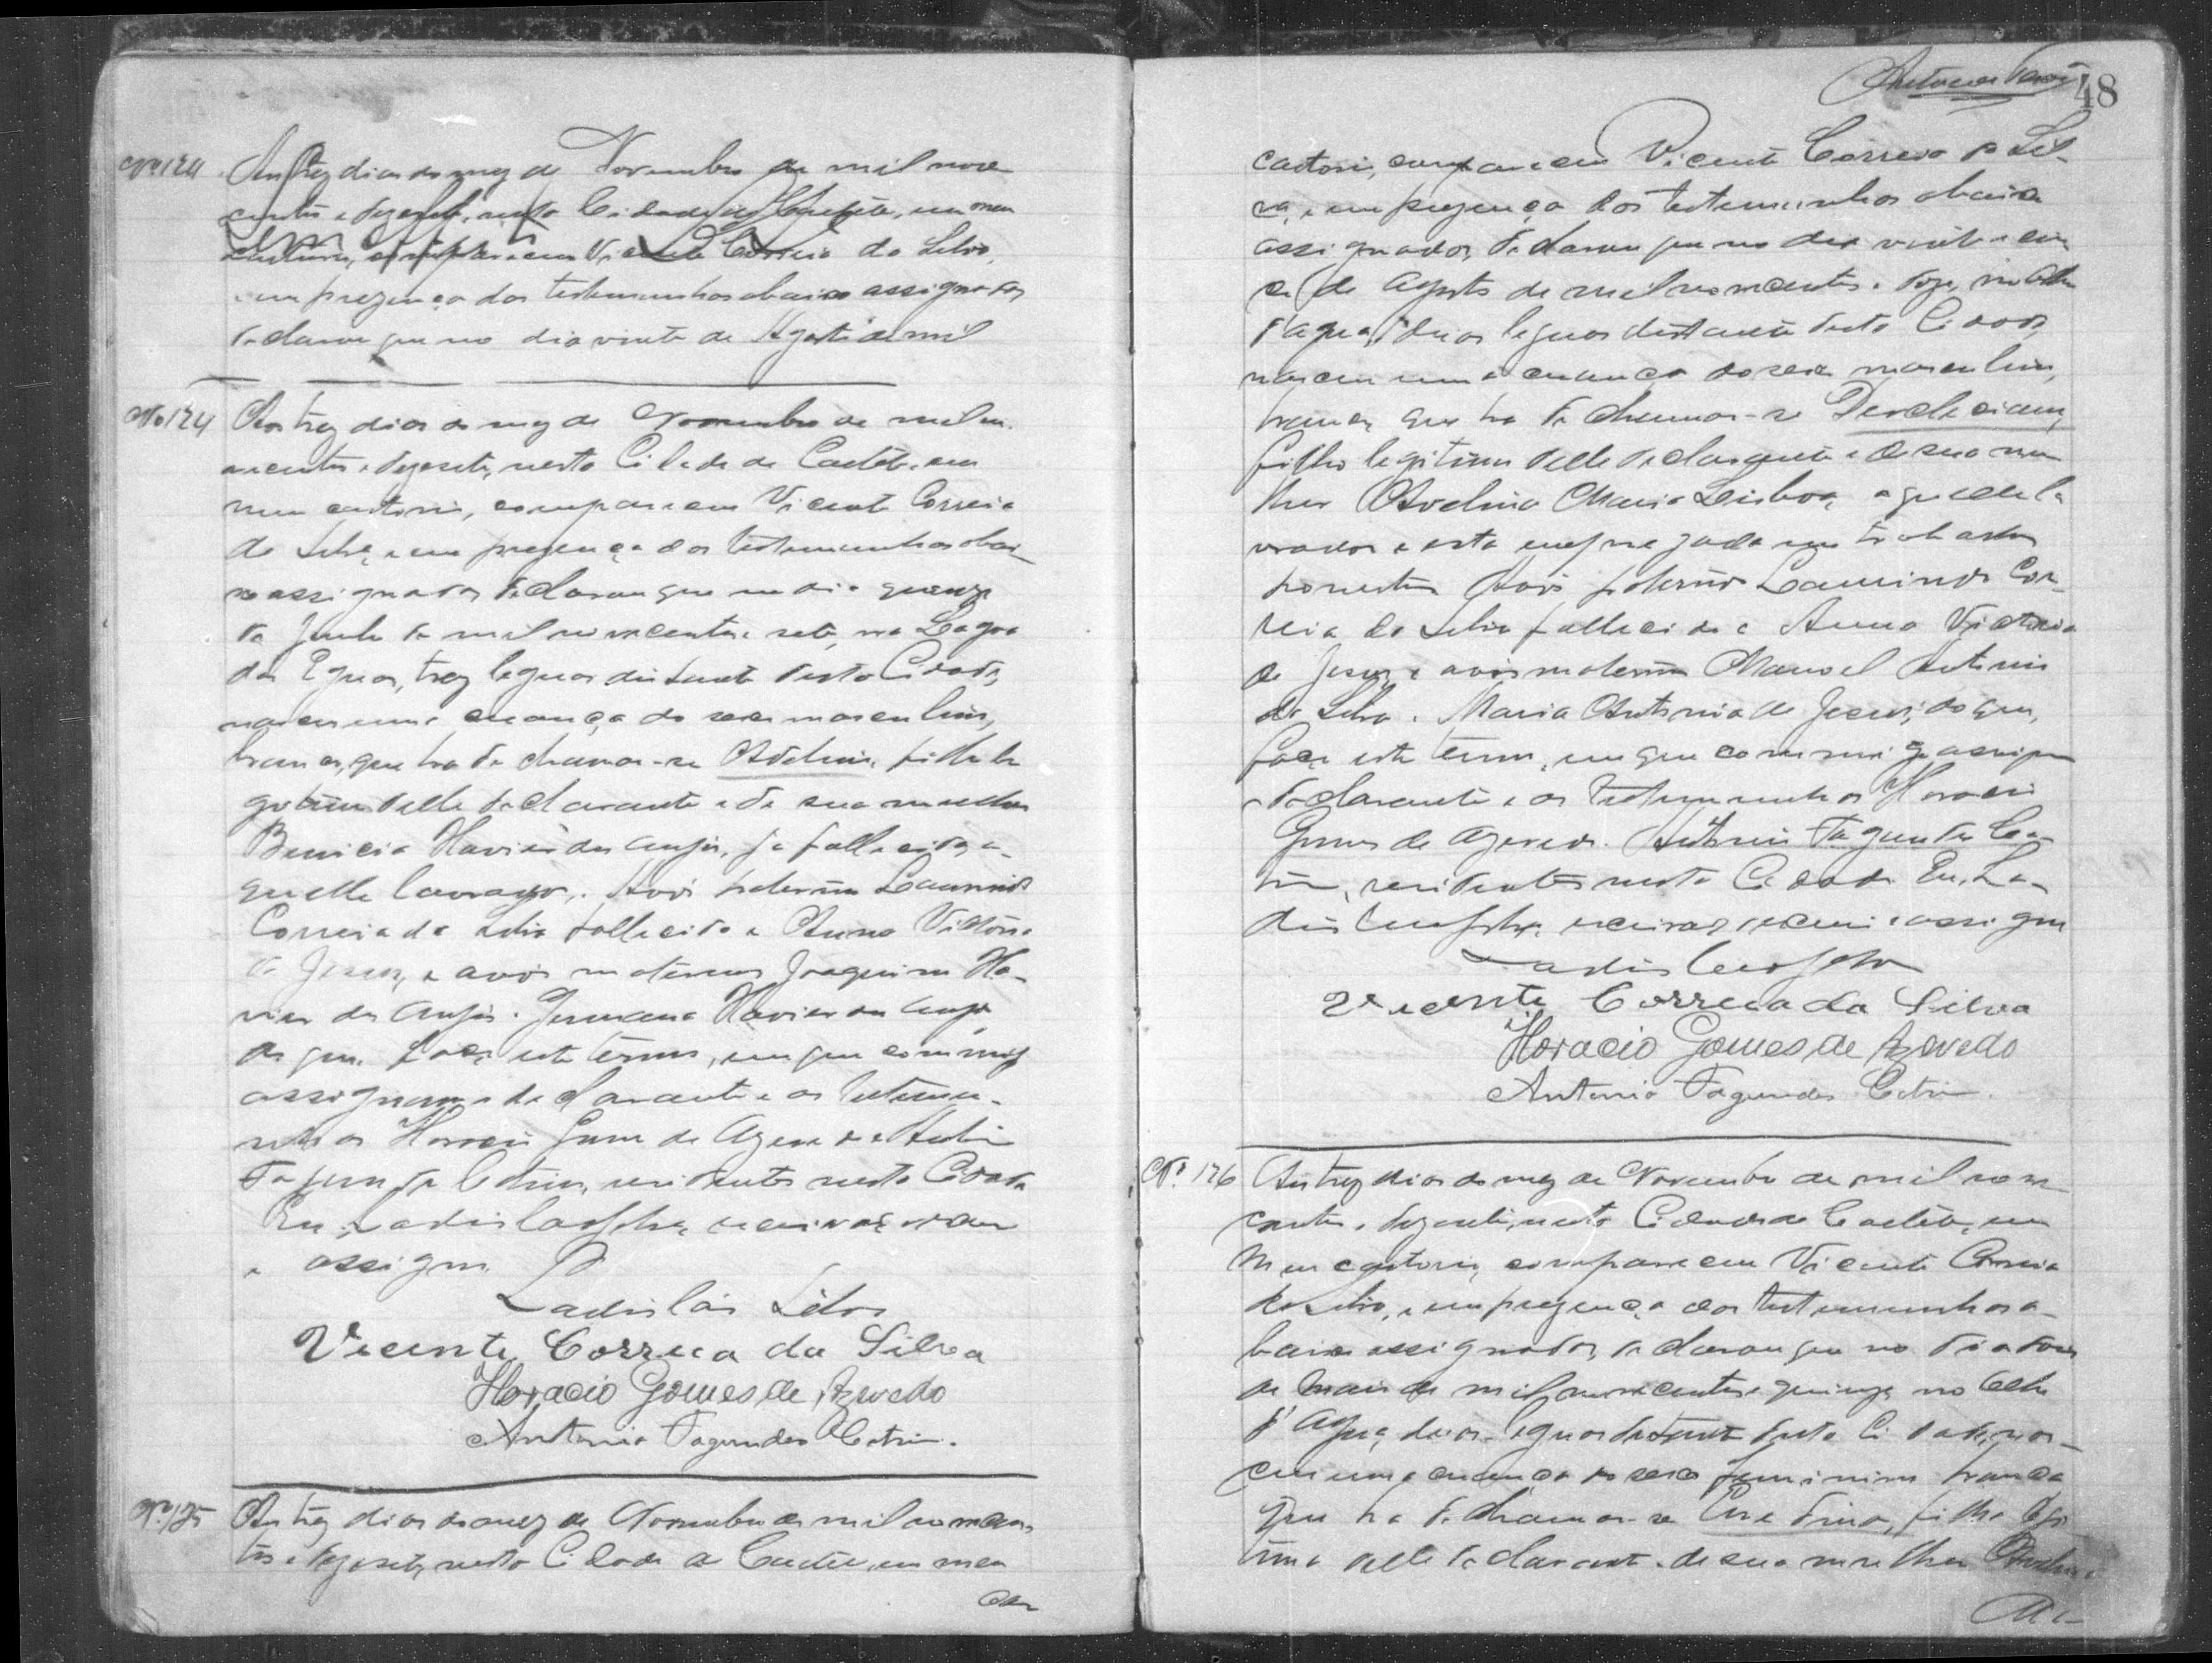 Nº 124 Aos trez dias do mez de Novembro de mil nove
centos e dezesete, nesta Cidade de Caeteté, em meu
cartorio, compareceu Vicente Correia da Silva,
e em prezença das testemunhas abaixo assignadas
declarou que no dia vinte de Agosto de mil
Nº 124 Aos trez dias do mez de Novembro de mil no-
vecentos e dezesete, nesta Cidade de Caeteté, em
meu cartorio, compareceu Vicente Correia
da Silva, e em prezença das testemunhas abai-
xo assignadas declarou que no dia quinze
de Junho de mil novecentos e sete, na Lagoa
das Eguas, trez leguas distante desta Cidade,
nasceu uma creança do sexo masculino,
branca, que ha de chamar-se Adelino, filho le
gitimo delle declarante e de sua mulher
Benicia Xavier dos Anjos, ja fallecida, a-
quelle lavrador. Avós paternos Laurindo
Correia da Silva fallecido e Anna Victoria
de Jesus, e avós maternos Joaquim Xa-
vier dos Anjos e Germana Xavier dos Anjos,
do que faço este termo, em que commigo
assignam o declarante e as testemu-
nhas Horacio Gomes de Azevedo e Antonio
Fagundes Cotrim, residentes nesta Cidade
Eu, Ladislau Silva, escrivão, escrevi
e assigno.
Ladislau Silva
Vicente Correia da Silva
Horacio Gomes de Azevedo
Antonio Fagundes Cotrim.
Nº 125 Aos trez dias do mez de Novembro de mil novecen-
tos e dezesete, nesta Cidade de Caeteté, em meu
48
cartorio, compareceu Vicente Correia da Sil-
va, e em prezença das testemunhas abaixo
assignadas, declarou que no dia vinte e
de Agosto de mil novecentos e doze, no Olho
d'agua, duas leguas distante desta Cidade,
nasceu uma creança do sexo masculino,
branca, que ha de chamar-se Deocleciano,
filho legitimo delle declarante e de sua mu
lher Avelina Maria Lisboa, aquelle la
vrador e esta empregada em trabalhos
domesticos. Avós paternos Laurindo Cor-
reia da Silva fallecido e Anna Victoria
de Jesus, e avós maternos Manoel Antonio
da Silva e Maria Antonia de Jesus, do que,
faço este termo, em que commigo assignam
o declarante e as testemunhas Horacio
Gomes de Azevedo e Antonio Fagundes Co-
trim, residentes nesta Cidade. Eu, La-
dislau Silva, escrivão, escrevi e assigno
Ladislau Silva
Vicente Correia da Silva
Horacio Gomes de Azevedo
Antonio Fagundes Cotrim.
Nº 126 Aos trez dias do mez de Novembro de mil nove
centos e dezesete, nesta Cidade de Caeteté, em
meu cartorio, compareceu Vicente Correia
da Silva, e em prezença das testemunhas a-
baixo assignadas, declarou que no dia doze
de Maio de mil novecentos e quinze, no Olho
d'Agua, duas leguas distante desta Cidade, nas-
ceu uma creança do sexo feminino branca
que ha de chamar-se filha legi
tima delle declarante e de sua mulher Avelina